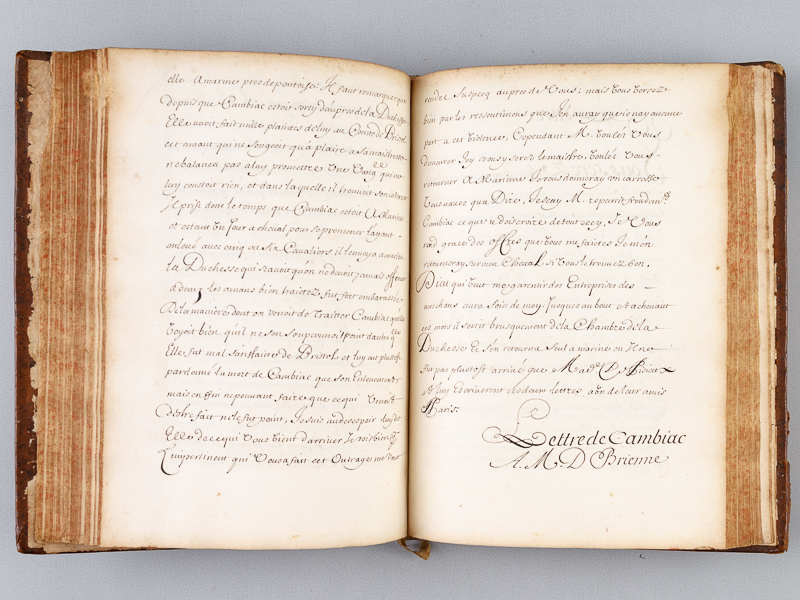 elle a marine pres de pontoise: Il faut remarquer que
depuis que Cambiac estoit sorty d'aupres de la Duchesse
Elle avoit fait mille plaintes de luy au Comte de Bristol
cet amant qui ne songeoit qu'a plaire a sa maistresse
ne balança pas a luy promettre Une Vang.ce qui ne
luy coustoit rien, et dans laquelle il trouvoit son interest
Il prist donc le temps que Cambiac estoit A Marine
et estant Un Jour a cheval pour se promener layant
enlevé avec cinq ou Six Cavaliers il lenvoya a
La Duchesse qui sçavoit qu'on ne devoit jamais offencer
a demy les amans bien traitez, fut fort embarassée
De la maniere dont on venoit de Traitter Cambiac qu'elle
Voyoit bien qu'il ne son soupçonnoit pour d'autre qu'elle
Elle fut mal Satisfaitte de Bristol et luy eut plustost
pardonné la mort de Cambiac que son Enlevement
mais enfin ne pouvant faire que ce qui Venoit
d'estre fait ne le fut point, Je suis au desespoir luy dit
Elle de ce qui Vous vient d'arriver Je vois bien que
L'impertinent qui Vous a fait cet Outrage me veut
rendre suspecq aupres de Vous: mais Vous Verrez
bien par les ressentimens que J'en auray que je n'ay aucune
part a cet Violence, Cependant M. Voulés Vous
demeurer Icy vous y serez le maistre, Voulés Vous
retourner A Marinne Je vous donneray un carrosse
Vous n'avés qua Dire, Je sçay M. repartit froidem.t
Cambiac ce que je dois croire de tout cecy, Je Vous
rad graces des offres que Vous me faites Je m'en
retourneray sur mon Cheval si Vous le trouvez bon,
Dieu qui Veut me garentir des Entreprises des
mechans aura Soin de moy: Jusques au bout et achevant
ces mots il sortit brusquement de la Chambre de la
Duchesse et s'en retourna Seul a marine ou Il ne
fut pas plustost arrivé que Mad.e
et luy Ecriveront ces deux lettres a de leur amis
Paris:
Lettre de Cambiac
A. M. D Brienne